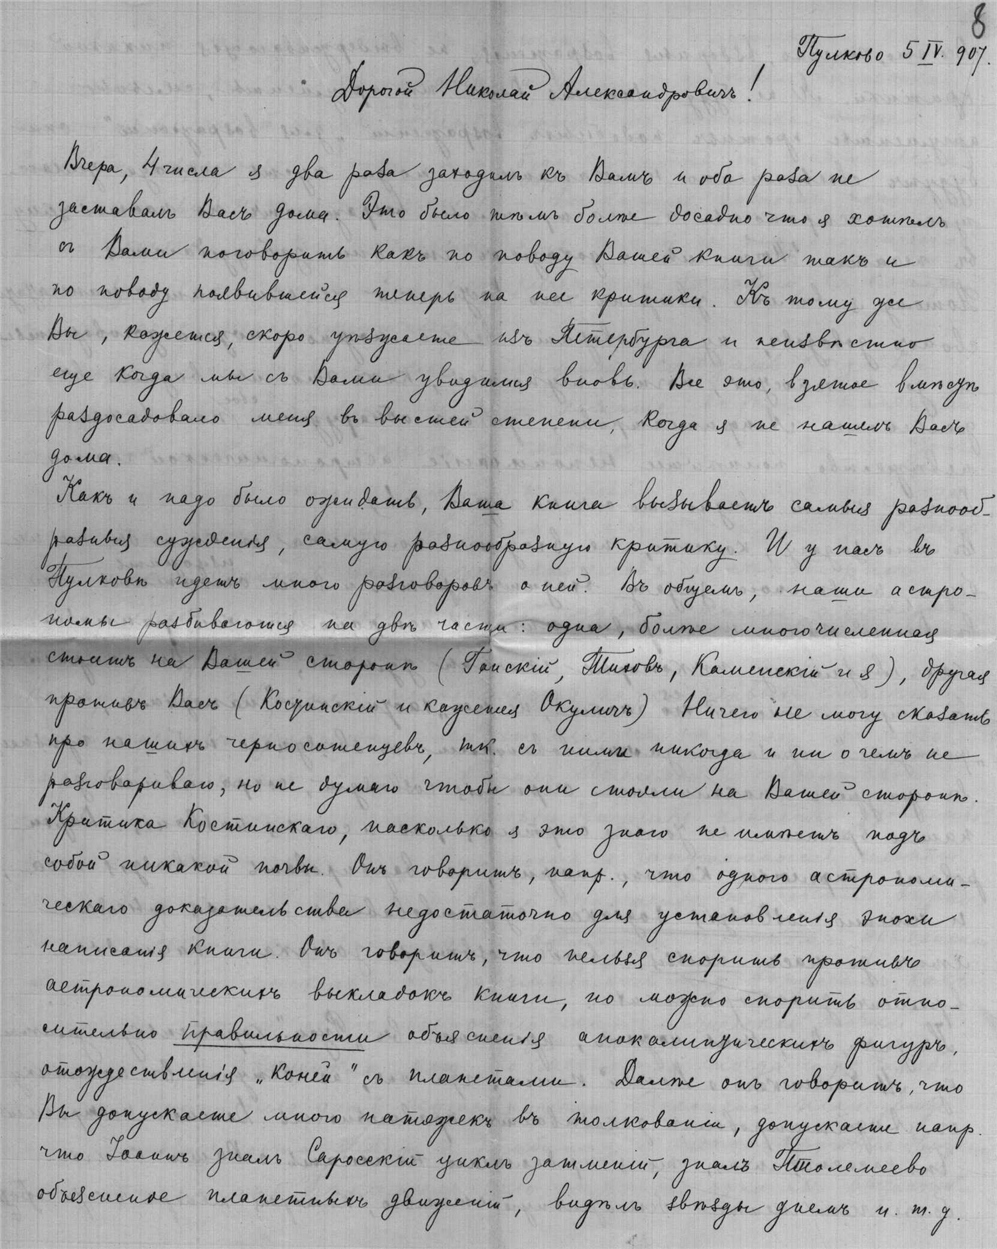 8
Пулково 5 IV. 907.
Дорогой Николай Александровичъ!
Вчера, 4 числа я два раза заходилъ къ Вамъ и оба раза не
заставалъ Васъ дома. Это было тѣмъ болѣе досадно что я хотѣлъ
съ Вами поговорить какъ по поводу Вашей книги такъ и
по поводу появившейся теперь на нее критики. Къ тому же
Вы, кажется, скоро уѣзжаете изъ Петербурга и неизвѣстно
еще когда мы съ Вами увидимся вновь. Все это, взятое вмѣстѣ
раздосадовало меня въ высшей степени, когда я не нашелъ Васъ
дома.
Какъ и надо было ожидать, Ваша книга вызываетъ самыя разнооб-
разныя сужденія, самую разнообразную критику. И у насъ въ
Пулковѣ идетъ много разговоровъ о ней. Въ общемъ, наши астро-
номы разбиваются на двѣ части: одна, болѣе многочисленная
стоитъ на Вашей сторонѣ (Ганскій, Тиховъ, Каменскій и я), другая
противъ Васъ (Костинскій и кажется Окуличъ) Ничего не могу сказать
про нашихъ черносотенцевъ, тк. съ ними никогда и ни о чемъ не
разговариваю, но не думаю чтобы они стояли на Вашей сторонѣ.
Критика Костинскаго, насколько я это знаю не имѣетъ подъ
собой никакой почвы. Онъ говоритъ, напр., что одного астрономи-
ческаго доказательства недостаточно для установленія эпохи
написанія книги. Онъ говоритъ, что нельзя спорить противъ
астрономическихъ выкладокъ книги, но можно спорить отно-
сительно правильности объясненія апокалипзическихъ фигуръ,
отождествленія „коней" съ планетами. Далѣе онъ говоритъ, что
Вы допускаете много натяжекъ въ толкованіи, допускаете напр.
что Іоаннъ зналъ Саросскій циклъ затменій, зналъ Птолемеево
объясненіе планетныхъ движеній, видѣлъ звѣзды днемъ и. т. д.